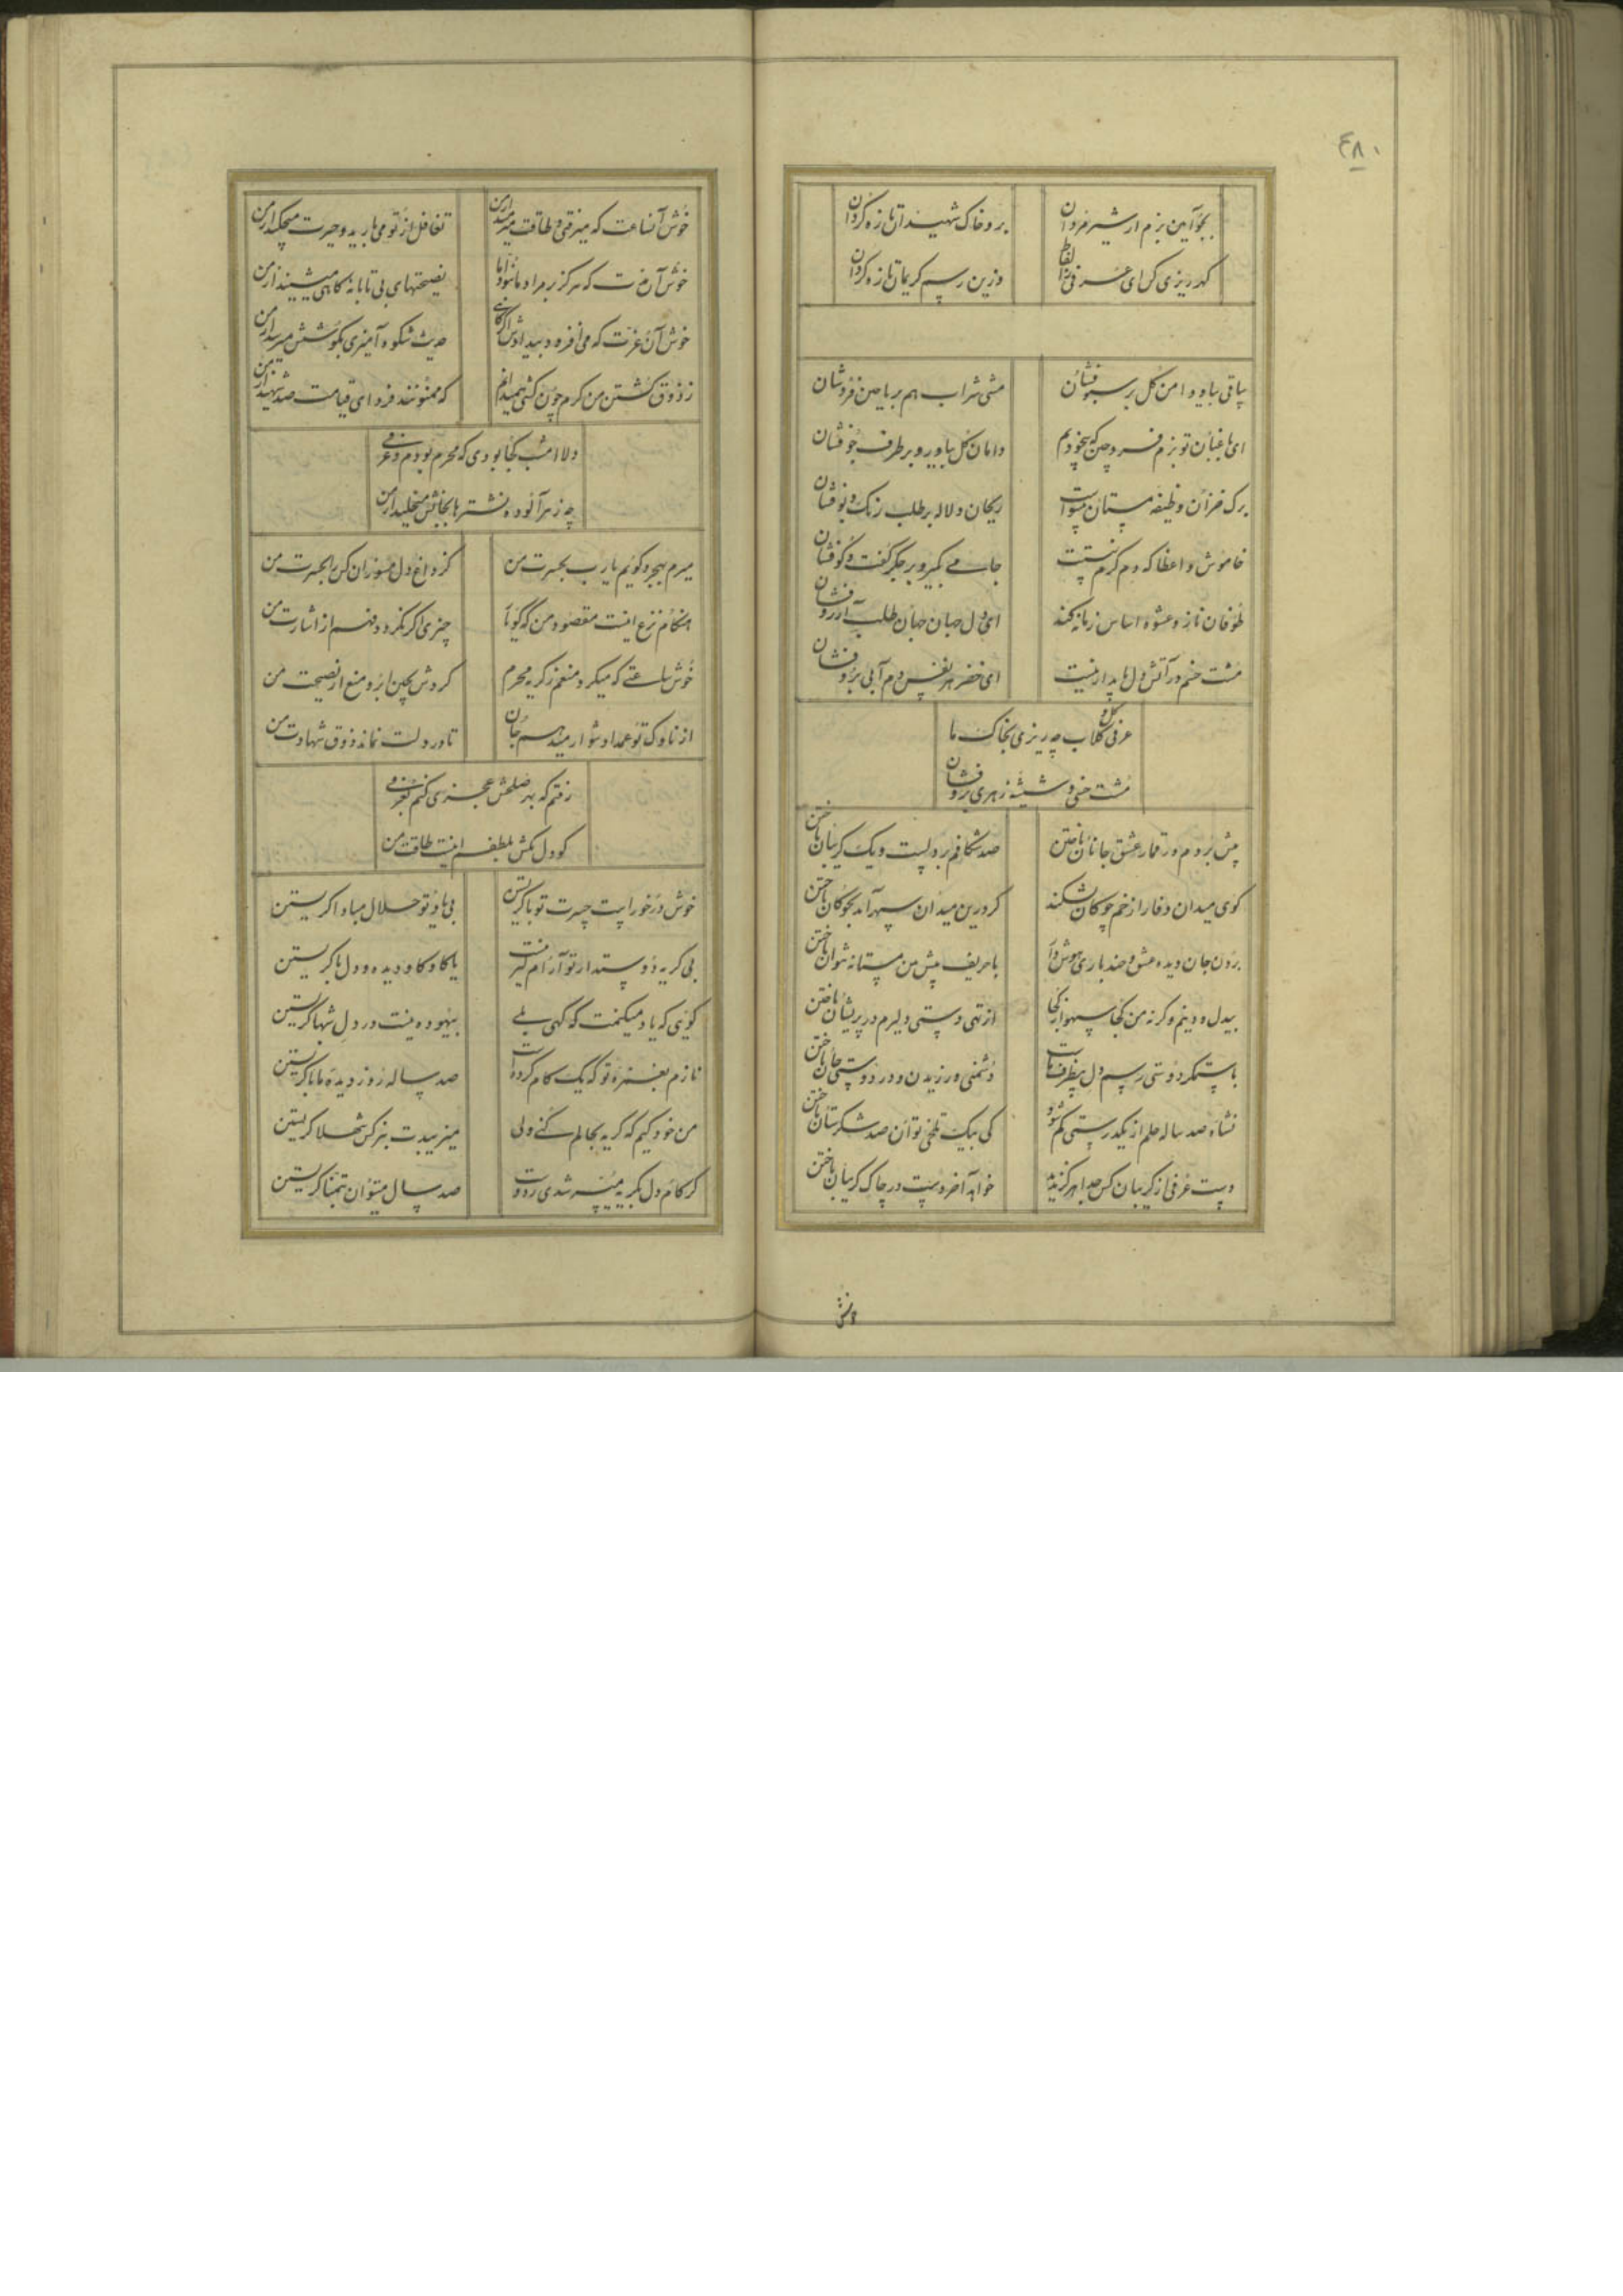 ۴۸۰
بجو آیین بزم از شیر مردان
بر و خاک شهیدان تازه گردان
گهر ریزی کن ای عرفی ز الفاظ
وزین رسم کریمان تازه گردان
ساقی بیا و دامن گل بر سبو فشان
مشتی شراب هم بریاحین فروشان
ای باغبان تو بزم فرو چین که بیخودیم
دامان گل بیاور و بر طرف جو فشان
برگ خزان وظیفه مستان
ریحان و لاله بر طلب رنگ و بو فشان
خاموش واعظا که دم گرم نیست
جامی بگیر و بر جگر گفت و گو فشان
طوفان ناز و عشوه اساس زمانه کند
ای دل جهان جهان طلب آرزو فشان
مشت خسم در آتش دل پایدار نیست
ای خضر هر نفس دم آبی برو فشان
عرفی گل و گلاب چه ریزی بخاک ما
مشت خسی و شیشه زهری برو فشان
پیش بردم در قمار عشق جانان باختن
صد شکافم بر دلست و یک گریبان باختن
گوی میدان وفا را زخم چوگان نشکند
گر درین میدان سپهر آید بچوگان باختن
بردن جان دیده عشق و خنده باری هوش دار
با حریف پیش من مستانه نتوان باختن
بیدل و دینم وگرنه من کجا سهو از کجا
از تهی دستی دلیرم در پریشان باختن
با ستمگر دوستی رسم دل بیظرف ماست
دشمنی ورزیدن و در دوستی جان باختن
نشاه صد ساله حلم از یکدرستی کم شود
کی بیک تلخی توان صد شکرستان باختن
دست عرفی از گریبان کس جدا هرگز ندید
خواهد آخر دست در چاک گریبان باختن
خوش آنساعت که میرفتی و طاقت میرمید از من
تغافل از تو می بارید و حسرت میچکید از من
خوش آن که هرگز بر مراد ما نبود اما
نصیحتهای بی تابانه گاهی میشنید از من
خوش آن عزت که می افزود بیدادش اگر گاهی
حدیث شکوه آمیزی بگوشش میرسید از من
ز ذوق کشتن من گرم چون کشتی همیدانم
که ممنونند فردای قیامت صد شهید از من
دلا امشب کجا بودی که محرم بودم و عرفی
چه زهر آلوده نشترها بجانش میخلید از من
میرم بهجر و گویم یارب بحسرت من
کز داغ دل مسوزان کس را بحسرت من
هنگام نزع اینست مقصود من که گویا
چیزی اگر نگردد فهم از اشارت من
خوش ساعتی که میکرد منعم ز گریه محرم
گردش بچین ابرو منع از نصیحت من
از ناوک تو عمدا دشوار میدهم جان
تا در دلت نماند ذوق شهادت من
رفتم که بهر صلحش عجزی کنم بعرفی
گو دل مکش بلطفم اینست طاقت من
خوش در خور است حسرت تو با گریستن
بی یاد تو حلال مبادا گریستن
بی گریه دوستدار تو آرام نگرفت
با کاوکاو دیده و دل با گریستن
گویی که یاد میکنمت گه گهی بلی
بیهوده نیست در دل شبها گریستن
نازم بغمزه تو که یک کام کرده است
صد ساله روز دیده ما با گریستن
من خود کیم که گریه بحالم کنی ولی
میزیبدت بنرگس شهلا گریستن
گر کام دل بگریه میسر شدی ز دوست
صد سال میتوان بتمنا گریستن